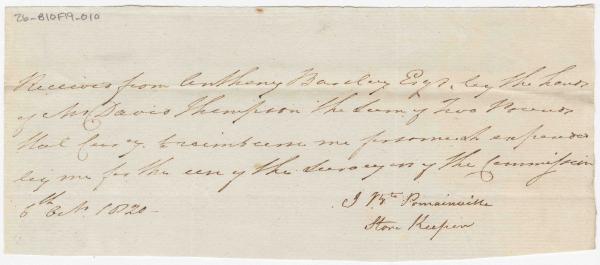 26-B10F19-010
Received from Anthony Barclay Esqr. by the hands
of Mr David Thompson the Sum of Two Pounds
Hal Curcy. to reimburse me for so much expended
by me for the use of the Surveyors of the Commission
6th Oct. 1820-
J Bte Pomainville
Store Keeper